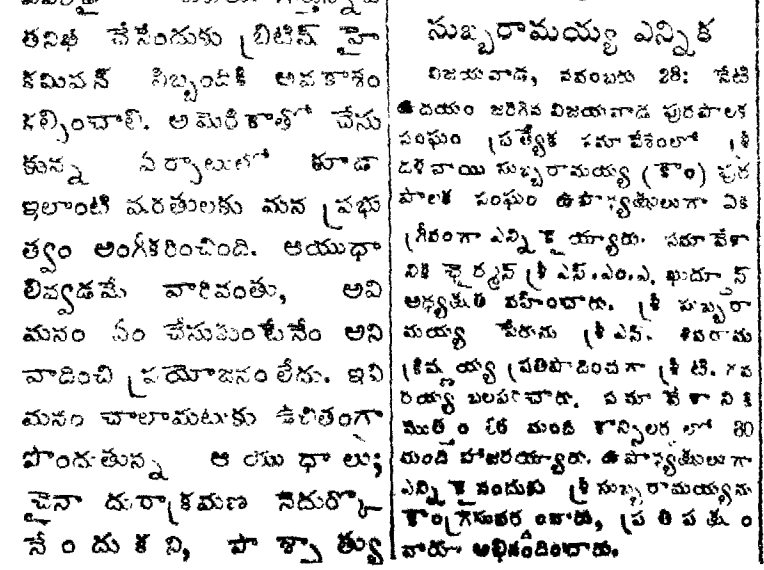 తనిఖీ చేసేందుకు బ్రిటిష్ హై
కమిషన్ సిబ్బందికి అవకాశం
కల్పించాలి. అమెరికాతో చేసు
కున్న ఏర్పాటులలో కూడా
ఇలాంటి షరతులకు మన ప్రభు
త్వం అంగీకరించింది. ఆయుధా
లివ్వడమే వారివంతు, అవి
మనం ఏం చేసుకుంటేనేం అని
వాదించి ప్రయోజనం లేదు. ఇవి
మనం చాలామటుకు ఉచితంగా
పొందుతున్న ఆయుధాలు;
చైనా దురాక్రమణ నెదుర్కొ
నేందుకని, పాశ్చాత్యు
సుబ్బరామయ్య ఎన్నిక
విజయవాడ, నవంబరు 28: నేటి
ఉదయం జరిగిన విజయవాడ పురపాలక
సంఘం ప్రత్యేక సమావేశంలో శ్రీ
దళవాయి సుబ్బరామయ్య (కాం) పుర
పాలక సంఘం ఉపాధ్యక్షులుగా ఏక
గ్రీవంగా ఎన్నికై య్యారు. సమావేశా
నికి ఛైర్మన్ శ్రీ ఎస్.ఎం.ఎ.
అధ్యక్షత వహించారు. శ్రీ సుబ్బరా
మయ్య పేరును శ్రీ ఎన్. శివరామ
క్రిష్ణయ్య ప్రతిపాదించగా శ్రీ టి. గవ
రయ్య బలపరచారు. సమావేశానికి
మొత్తం మంది కౌన్సిలర్లలో 30
మంది హాజరయ్యారు. ఉపాధ్యక్షులుగా
ఎన్నికైనందుకు శ్రీ సుబ్బరామయ్యను
కాంగ్రెసువర్గంవారు, ప్రతిపక్షం
వారూ అభినందించారు.